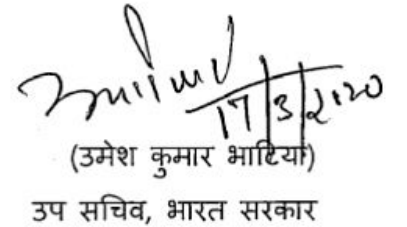 17/3/2020
(उमेश कुमार भाटिया)
उप सचिव, भारत सरकार